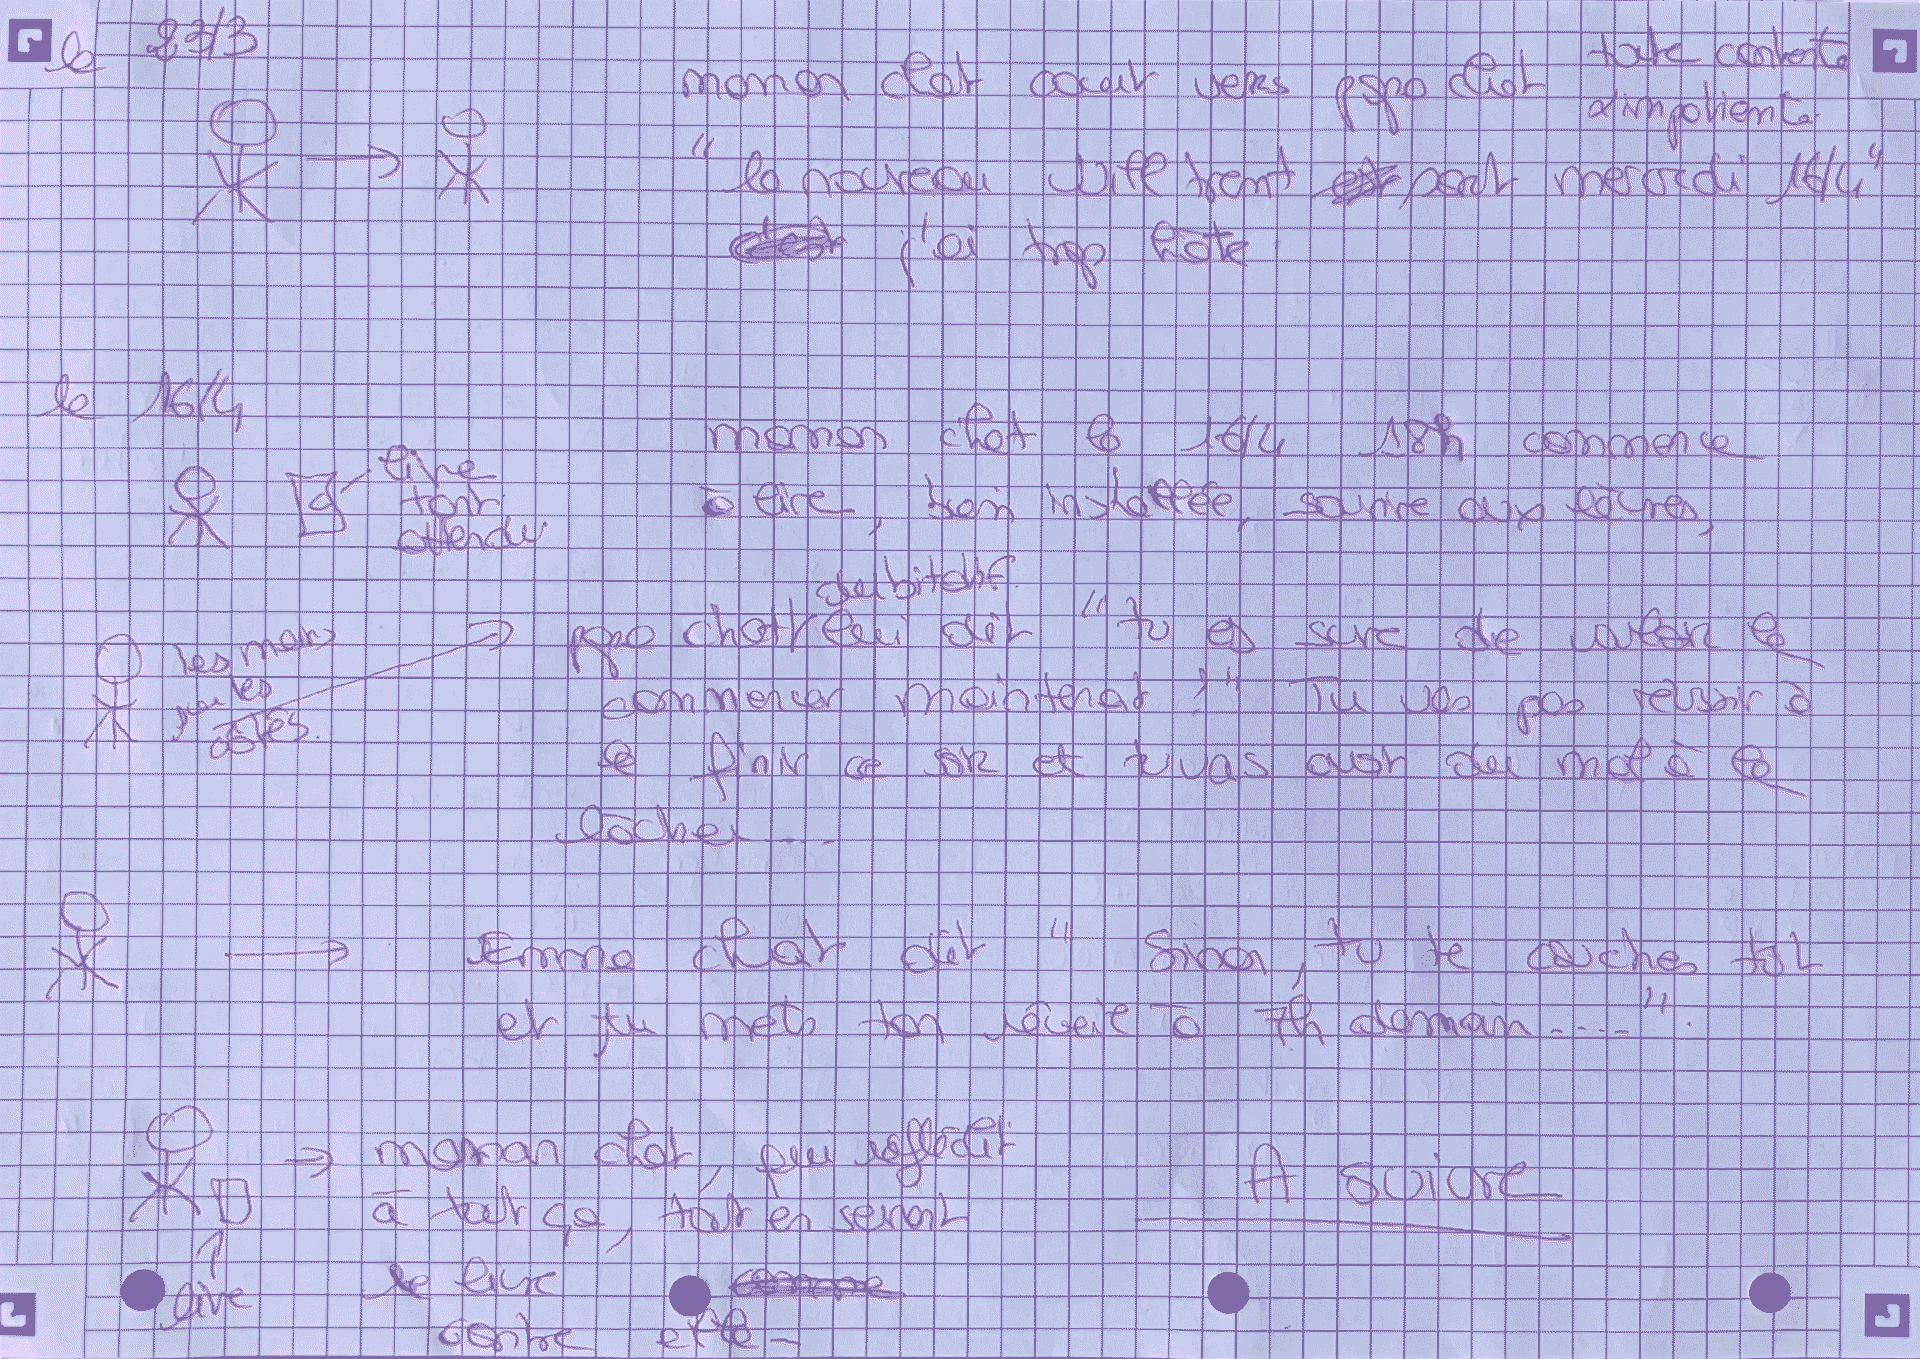 le 27/3
maman chat court vers papa chat toute contente
d'impatiente
"le nouveau Wife Kremt part mercredi 16/4"
j'ai trop hâte
le 16/4
livre
tant
attendu
maman chat le 16/4 18h commence
à lire, bien installée, sourire aux lèvres,
dubitatif
les mains
sur les
côtés.
papa chat lui dit "tu es sure de vouloir le
commencer maintenat ?" Tu vas pas reussir à
le finir ce soir et tu vas avoir du mal à le
lâcher ....
Emma chat dit " Sinon, tu te couches tôt
et tu mets ton réveil à 7h demain ....".
maman chat, qui réfléchit
à tout ça, tout en serrant
le livre
contre elle -
livre
A suivre